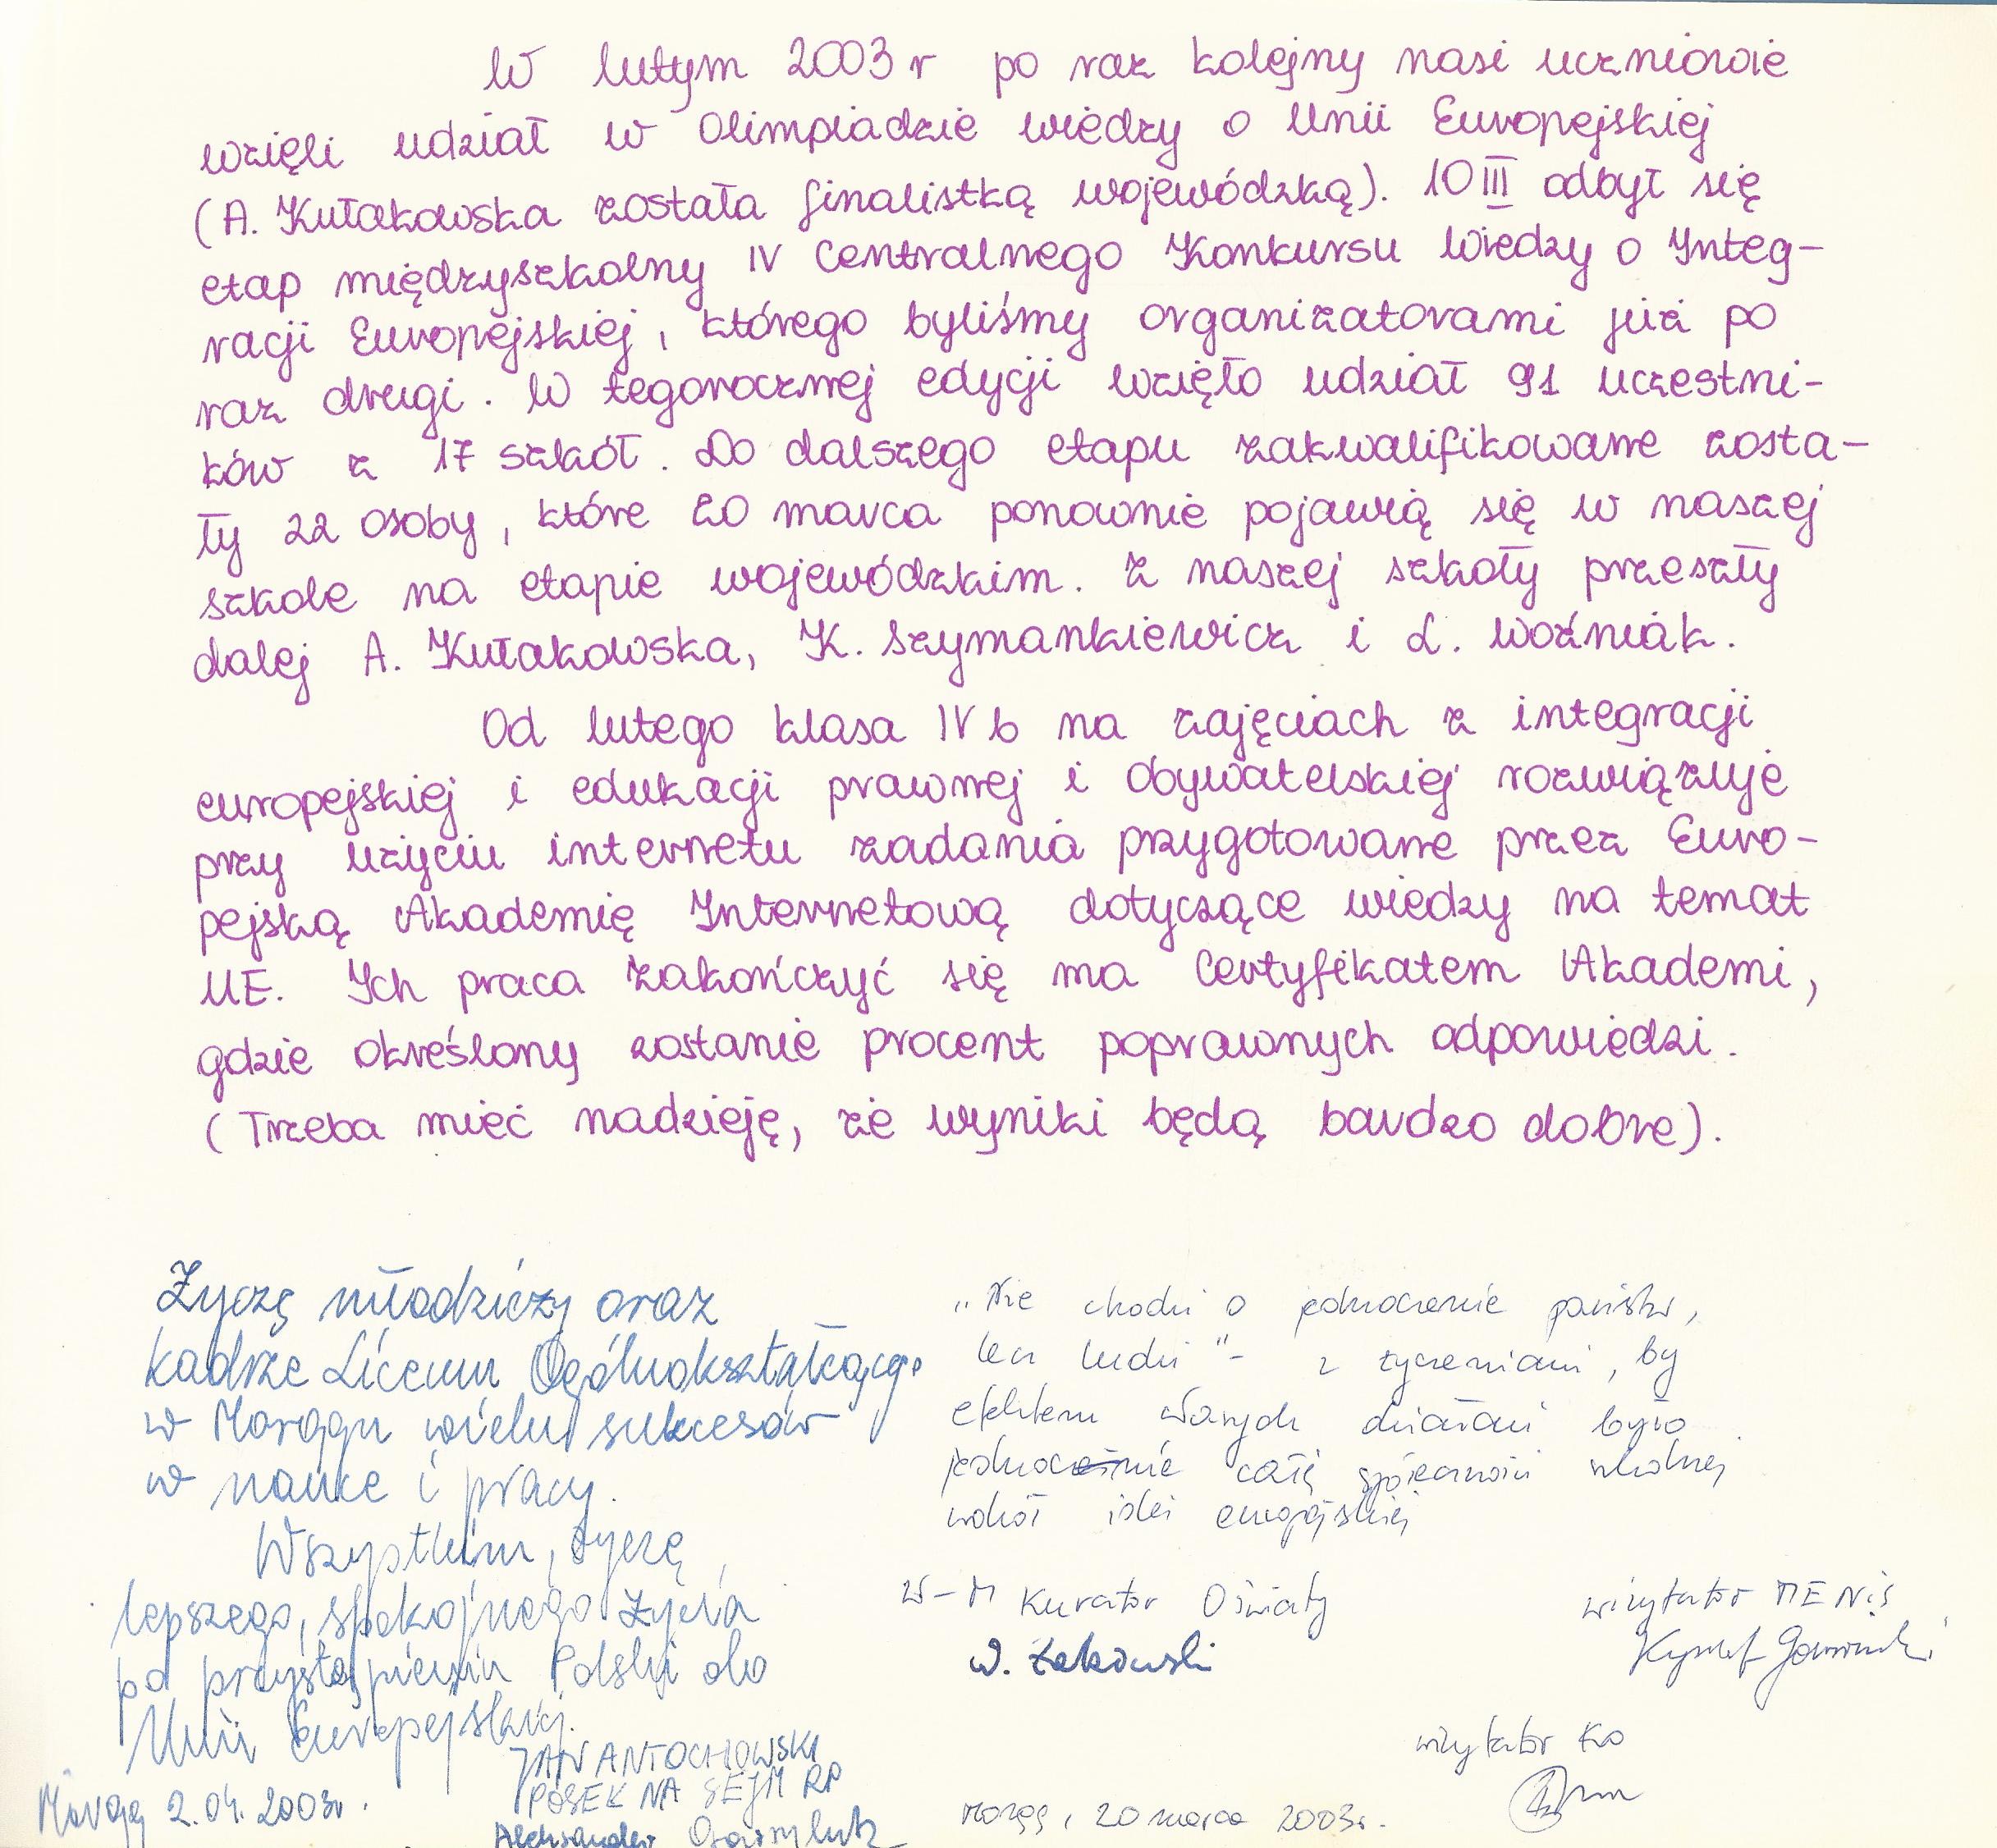 W lutym 2003 r po raz kolejny nasi uczniowie
wzięli udział w Olimpiadzie wiedzy o Unii Europejskiej
(A. Kułakowska została finalistką wojewódzką). 10 III odbył się
etap międzyszkolny IV Centralnego Konkursu Wiedzy o Integ-
racji Europejskiej, którego byliśmy organizatorami już po
raz drugi. W tegorocznej edycji wzięło udział 91 uczestni-
ków z 17 szkół. Do dalszego etapu zakwalifikowane zosta-
ły 22 osoby, które 20 marca ponownie pojawią się w naszej
szkole na etapie wojewódzkim. Z naszej szkoły przeszły
dalej A. Kułakowska, K. Szymankiewicz i L. Woźniak.
Od lutego klasa IV b na zajęciach z integracji
europejskiej i edukacji prawnej i obywatelskiej rozwiązuje
przy użyciu internetu zadania przygotowane przez Euro-
pejską Akademię Internetową dotyczące wiedzy na temat
UE. Ich praca zakończyć się ma Certyfikatem Akademi,
gdzie określony zostanie procent poprawnych odpowiedzi.
(Trzeba mieć nadzieję, że wyniki będą bardzo dobre).
Życzę młodzieży oraz
kadrze Liceum Ogólnokształcącego
w Morągu wielu sukcesów
w nauce i pracy.
Wszystkim, życzę
lepszego, spokojnego życia
po przystąpieniu Polski do
Unii Europejskiej.
JAN ANTOCHOWSKI
POSEŁ NA SEJM RP
Morąg 2.04.2003r.
Aleksander
„Nie chodzi o jednoczenie państw,
lecz ludzi" - z życzeniami, by
efektem Waszych działań było
jednoczenie całej społeczności szkolnej
wokół idei europejskiej
W-M Kurator Oświaty
W. Żakowski
wizytator MENiS
wizytator KO
Morąg, 20 marca 2003r.